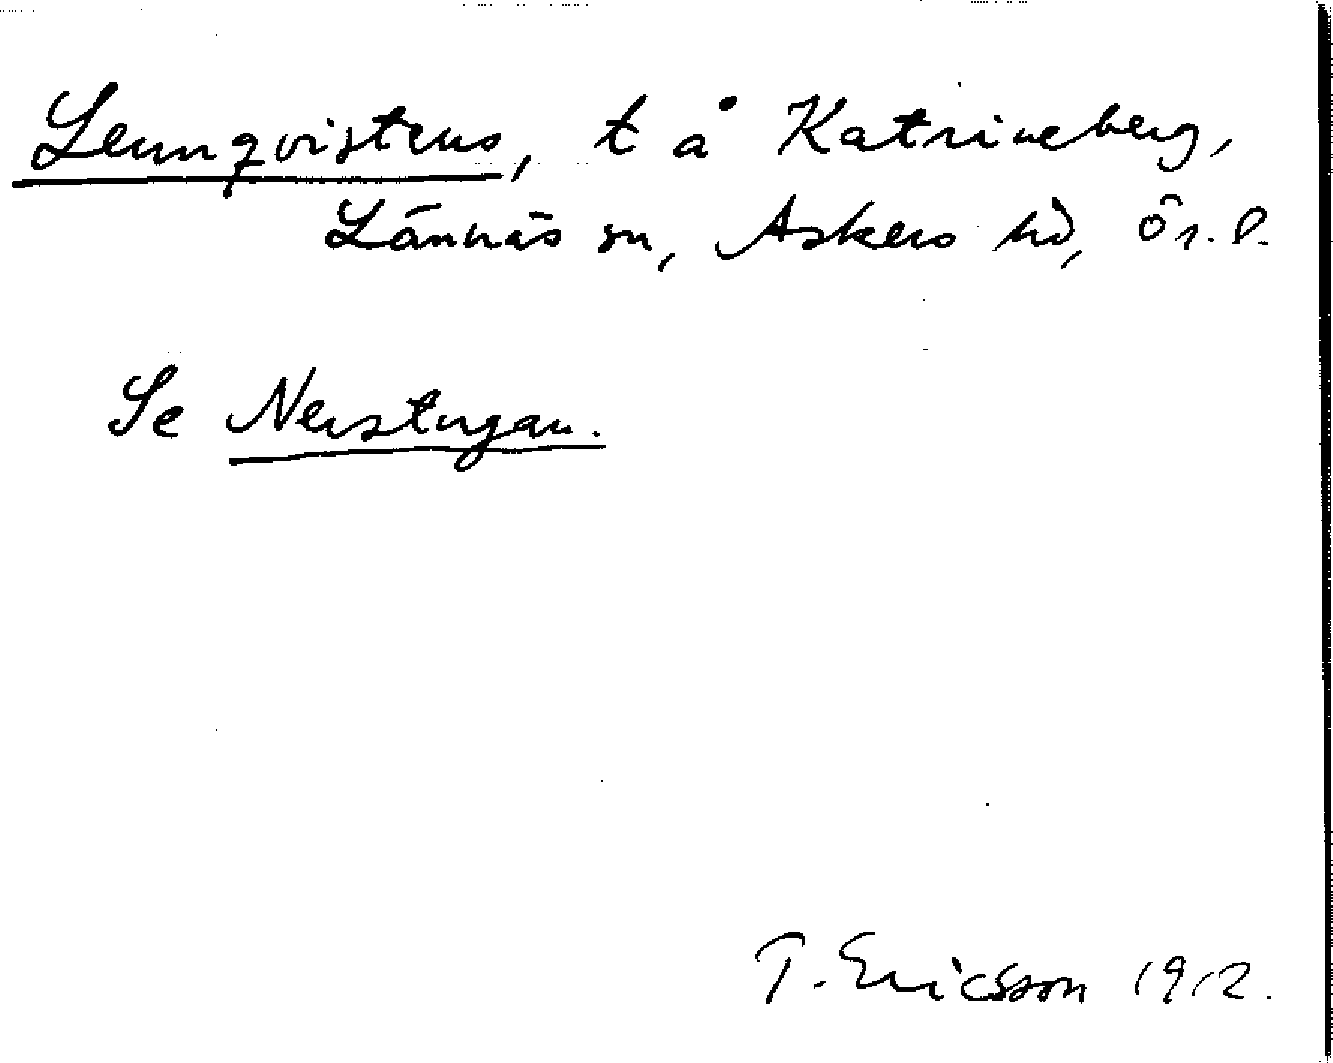 Lennqvistens, t å Katrineberg,
Lännäs sn, Askers hd, Ör. l.
Se Nerstugan.
T. Ericsson 1912.